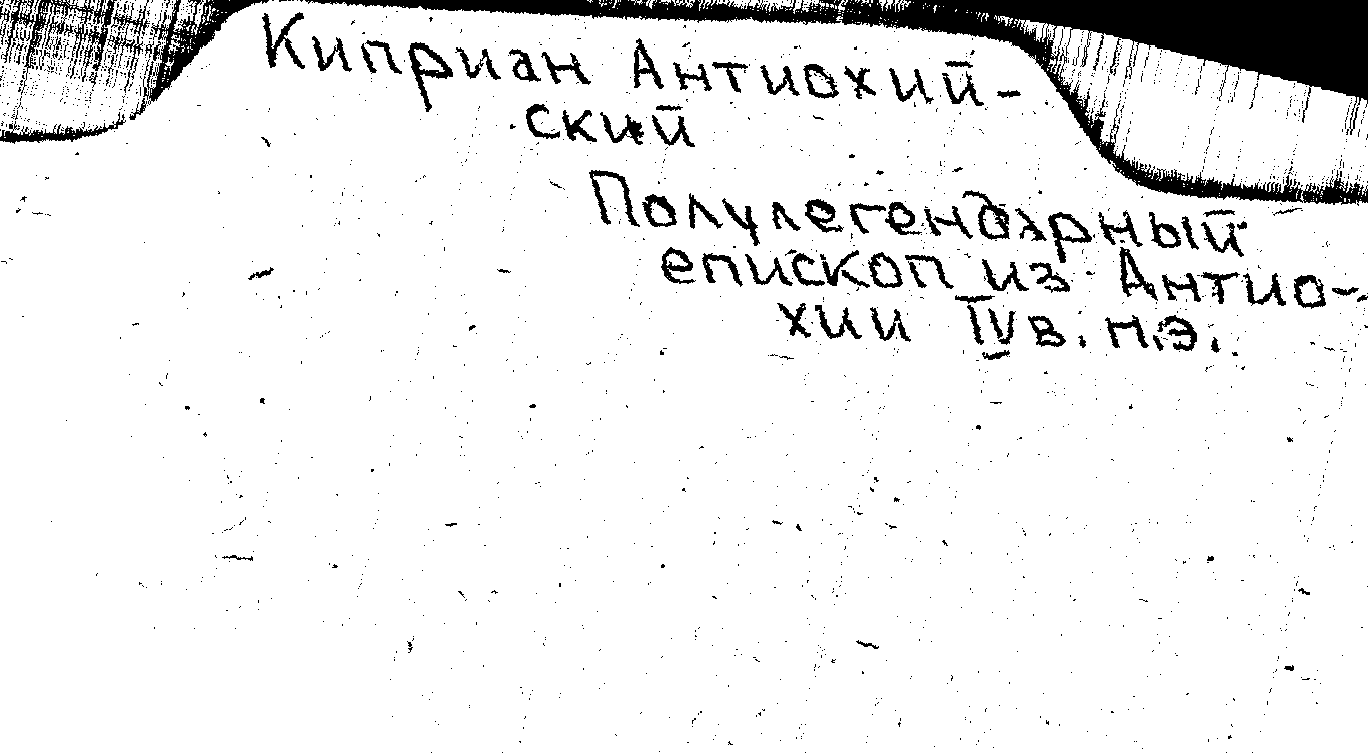 Киприан Антиохий-
ский
Полулегендарный
епископ из Антио-
хии IV в. н.э.